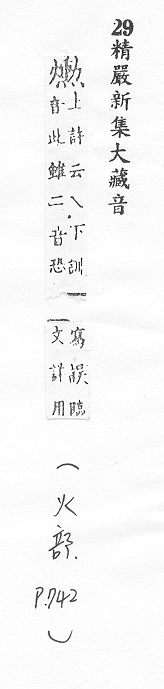 29精嚴新集大藏音
上詩云乀下訓
音此雖二音恐
寫誤臨
文詳用
(火部 P.742)